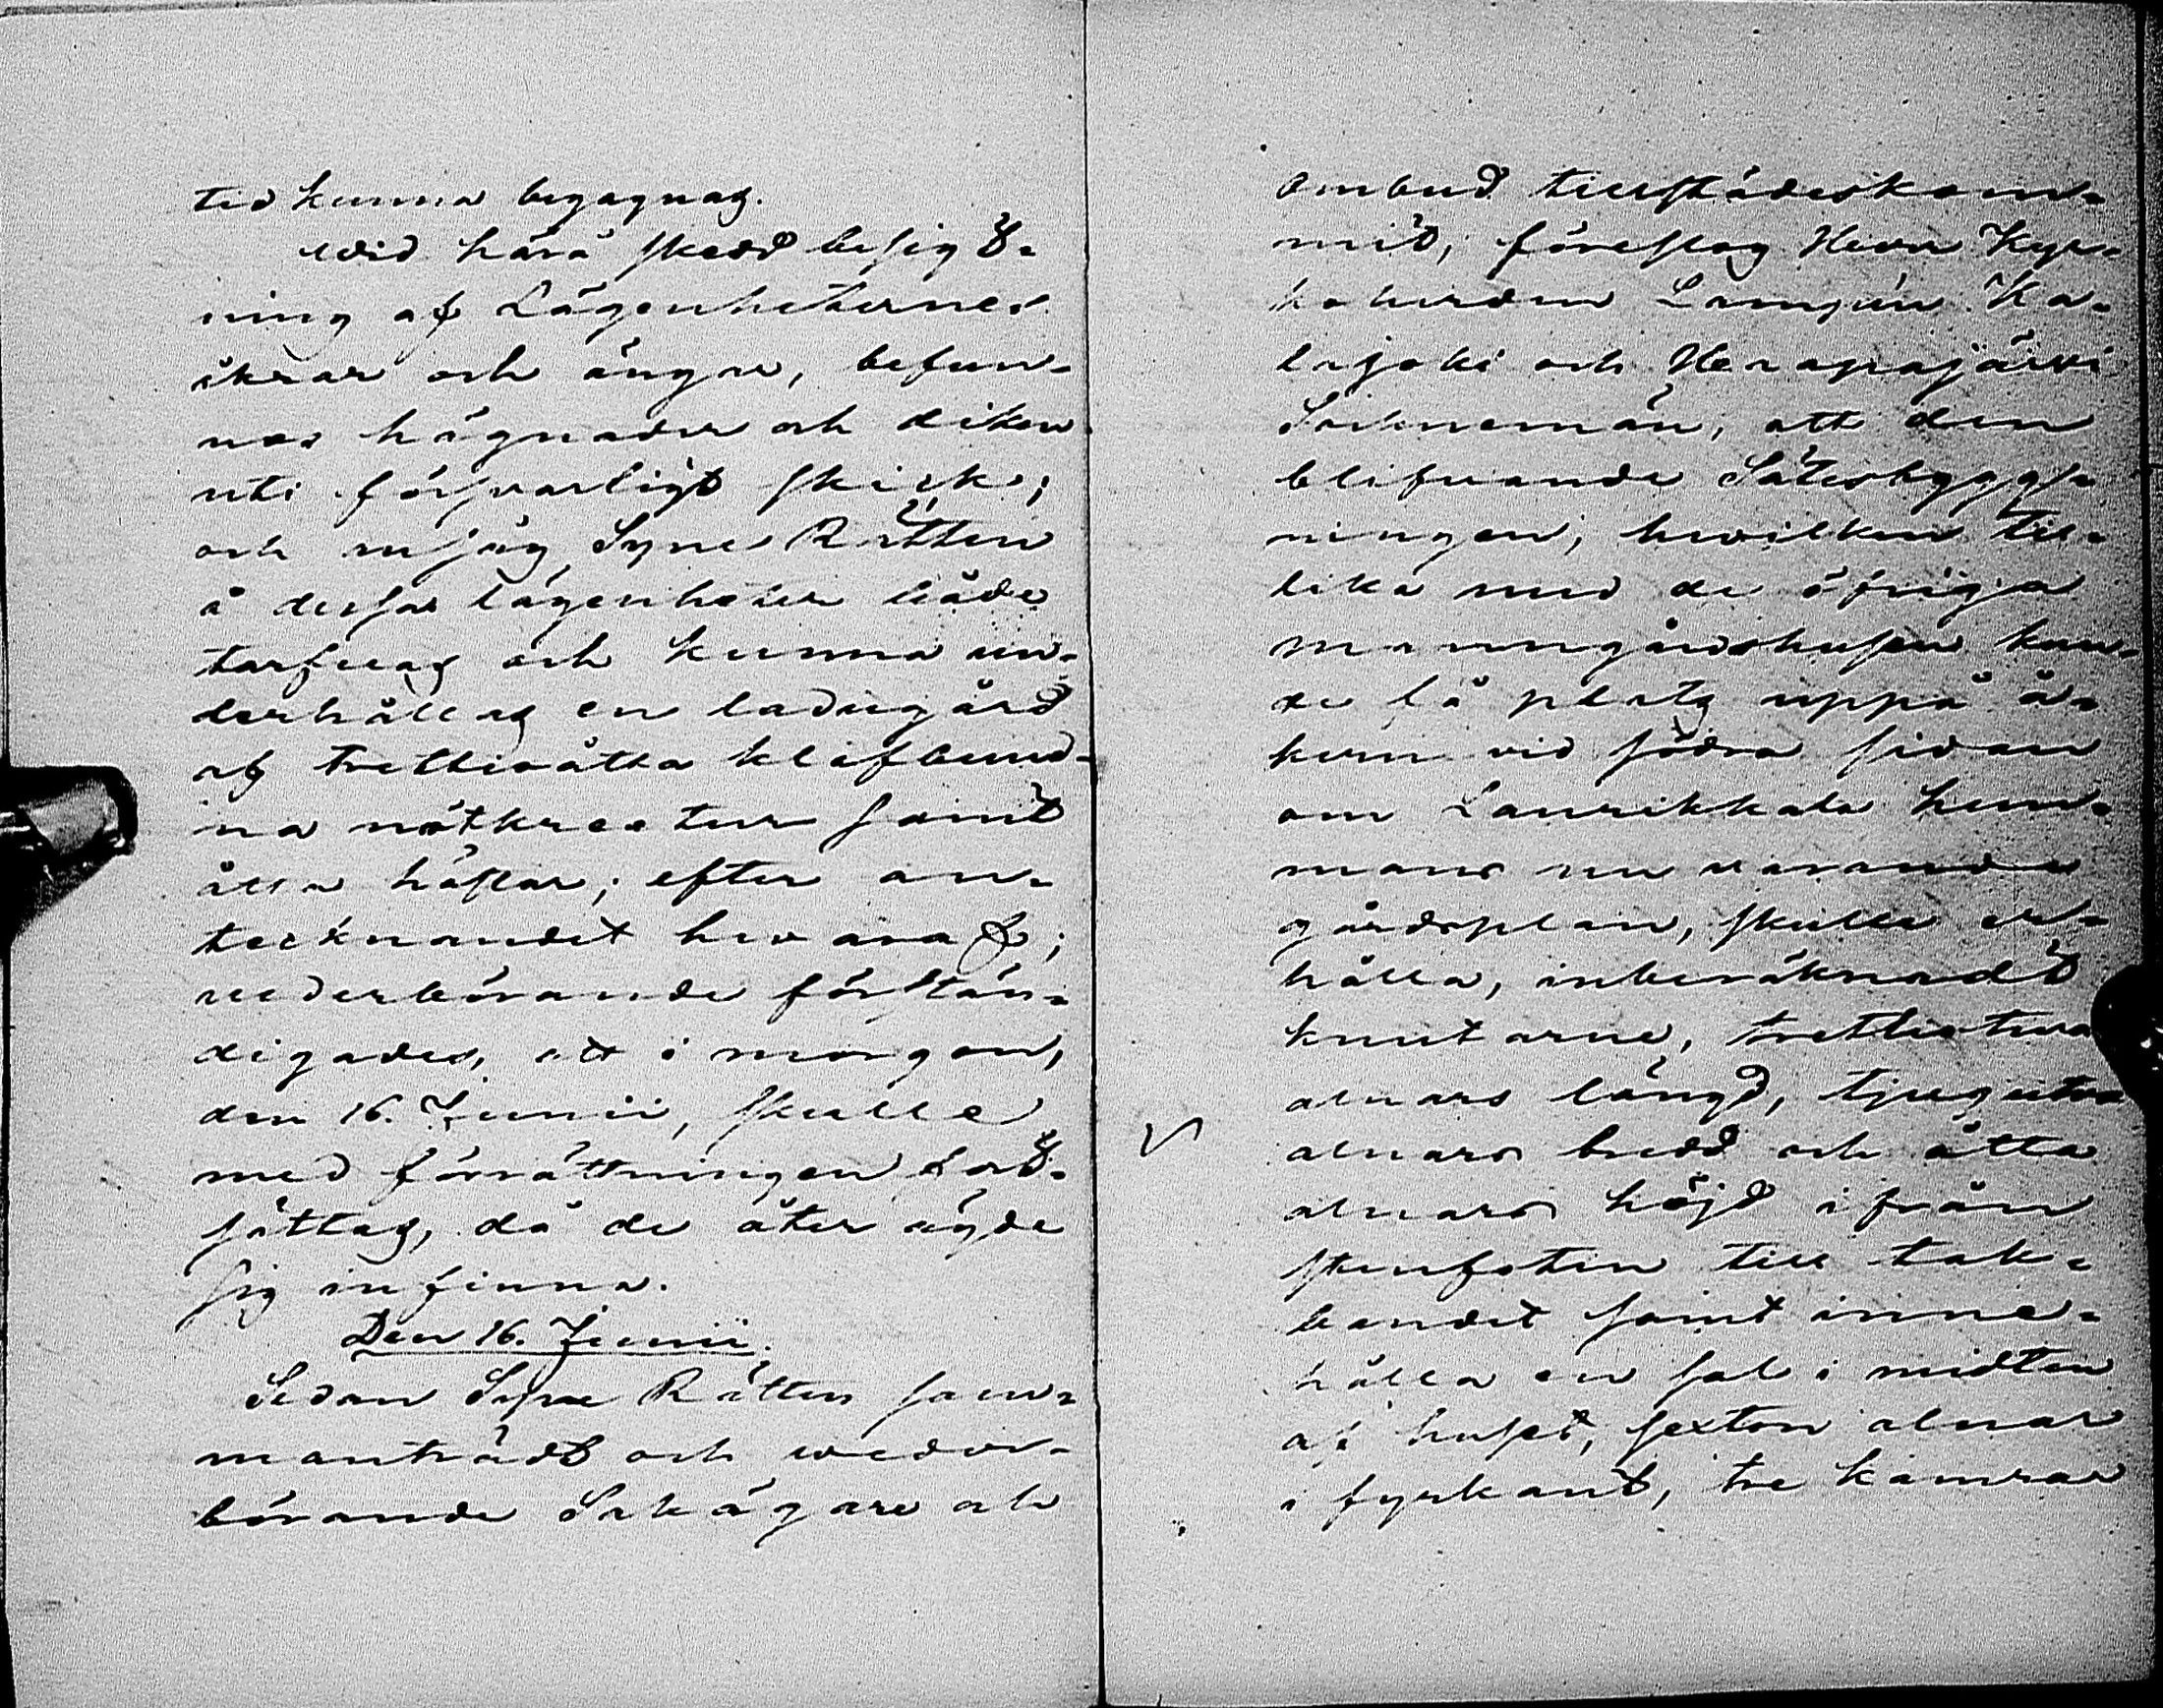 tid kunna begagnas.
wid härå skedd besigt-
ning af Lägenheternes
åkrar och ängar, befun-
nos hägnader och diken
uti försvarligt skick;
och ansåg Syne Rätten
å dessa lägenheter både
tarfvas och kunna un-
derhållas en ladugård
af trettioåtta klafbund-
na nötkreatur samt
åtta hästar; efter an-
tecknandet hvaraf;
vederbörande förstän-
digades, att i morgon,
den 16. Junii, skulle
med förrättningen fort-
sättas, då de åter ägde
sig infinna.
Den 16. Junii.
Sedan Syne Rätten sam-
manträdt och weder-
börande Sakägare och
ombud tillstädeskom-
mit, föreslog Herr Kyr-
koherden Kа-
lajoki och
Sockenmän, att den
blifvande Sätesbygg-
ningen, hwilken til-
lika med de öfriga
manngårdshusen kun-
de få plats uppå å-
kern vid södra sidan
om Laurikkala hem-
mans nu varande
gårdsplan, skulle er-
hålla, inberäknadt
knutarne, trettiotvå
alnars längd, tjugutvå
alnars bredd och åtta
alnars höjd ifrån
stenfoten till tak-
bandet samt inne-
hålla en sal i midten
af huset, sexton alnar
i fyrkant, tre kamrar